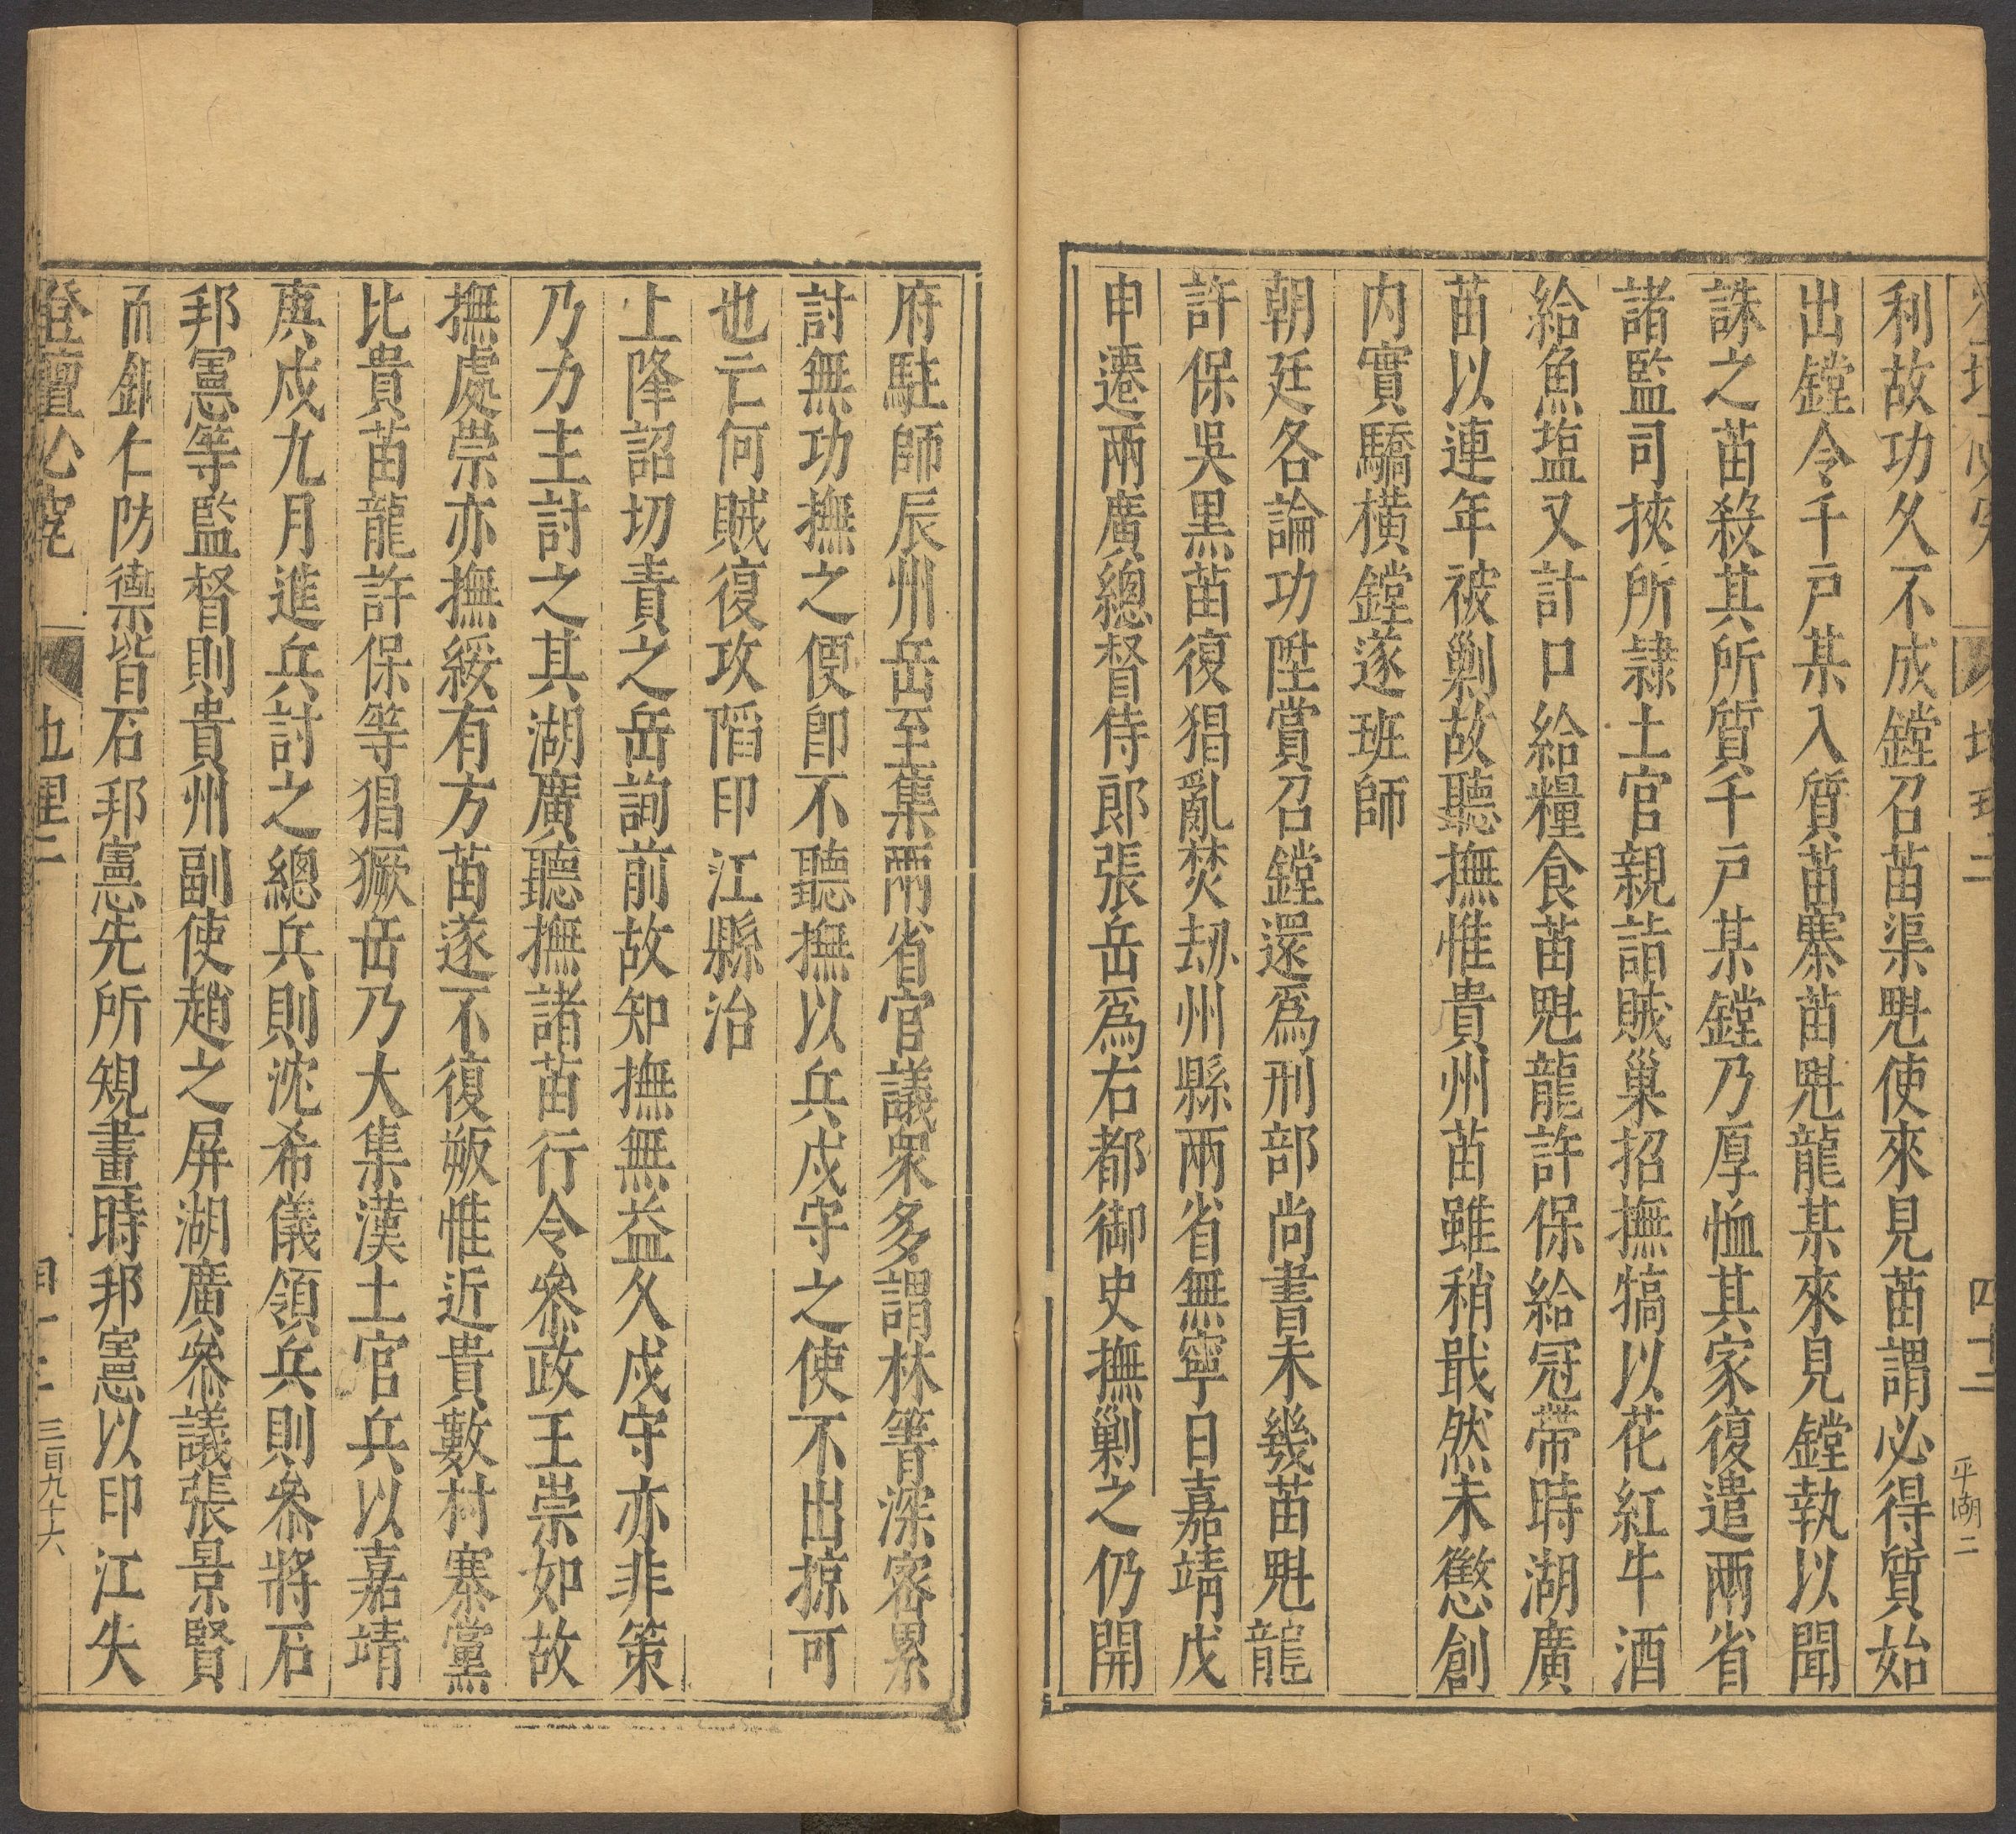 利故功久不成鏜召苗渠魁使來見苗謂必得質始
出鏜令千戸某入質苗寨苗魁龍某來見鏜執以聞
誅之苗殺其所質千戸某鏜乃厚恤其家復遣兩省
諸監司挾所隷土官親詣賊巢招撫犒以花紅牛酒
給魚塩又計口給糧食苗魁龍許保給冠帶時湖廣
苗以連年被剿故聽撫惟貴州苗雖稍戢然未懲創
内實驕橫鏜遂班師
朝廷各論功陞賞召鏜還爲刑部尚書未幾苗魁龍
許保吳黒苗復猖亂焚刼州縣兩省無寧日嘉靖戊
申遷兩廣總督侍郎張岳爲右都御史撫剿之仍開
四十二
平湖二
府駐師辰州岳至集兩省官議衆多謂林箐深密累
討無功撫之便卽不聽撫以兵戍守之使不出掠可
也亡何賊復攻䧟印江縣治
上降詔切責之岳詢前故知撫無益久戍守亦非策
乃力主討之其湖廣聽撫諸苗行令叅政王崇如故
撫處崇亦撫綏有方苗遂不復叛惟近貴數村寨黨
比貴苗龍許保等猖獗岳乃大集漢土官兵以嘉靖
庚戍九月進兵討之總兵則沈希儀領兵則叅將石
邦憲等監督則貴州副使趙之屏湖廣叅議張景賢
而銅仁防禦皆石邦憲先所規畫時邦憲以印江失
登壇必究
地理二
三百九十六